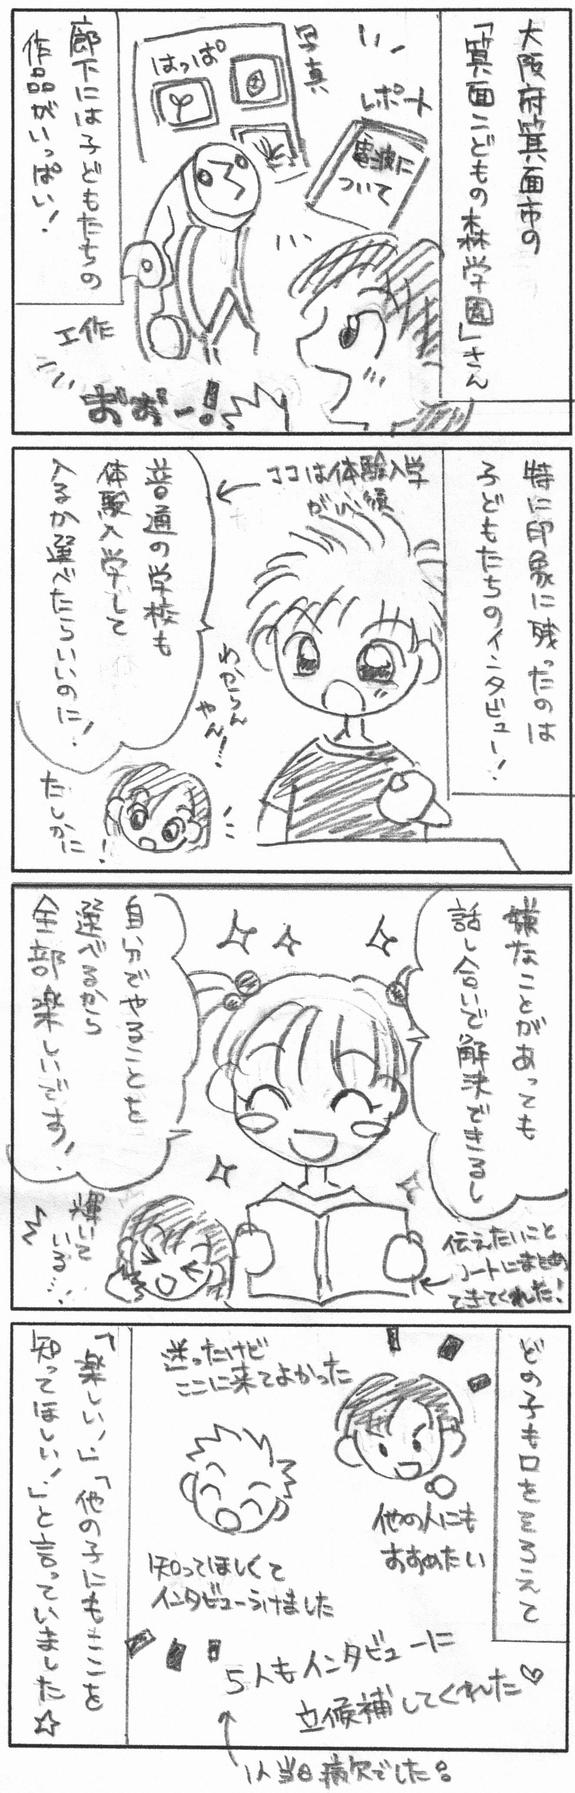 大阪府箕面市の
「箕面こどもの森学園」さん
レポート
電波に
ついて
写真
はっぱ
廊下には子どもたちの
作品がいっぱい！
工作
おぉー！
特に印象に残ったのは
子どもたちのインタビュー！
ココは体験入学
が必須
普通の学校も
体験入学して
入るか選べたらいいのに！
わからん
やん！
たしかに！
嫌なことがあっても
話し合いで解決できるし
自分でやることを
選べるから
全部楽しいです！
伝えたいこと
ノートにまとめ
てきてくれた！
輝いて
いる…！
どの子も口をそろえて
迷ったけど
ここに来てよかった
他の人にも
おすすめたい
知ってほしくて
インタビューうけました
5人もインタビューに
立候補してくれた♡
「楽しい！」「他の子にもここを
知ってほしい！」と言っていました☆
1人当日病欠でした。